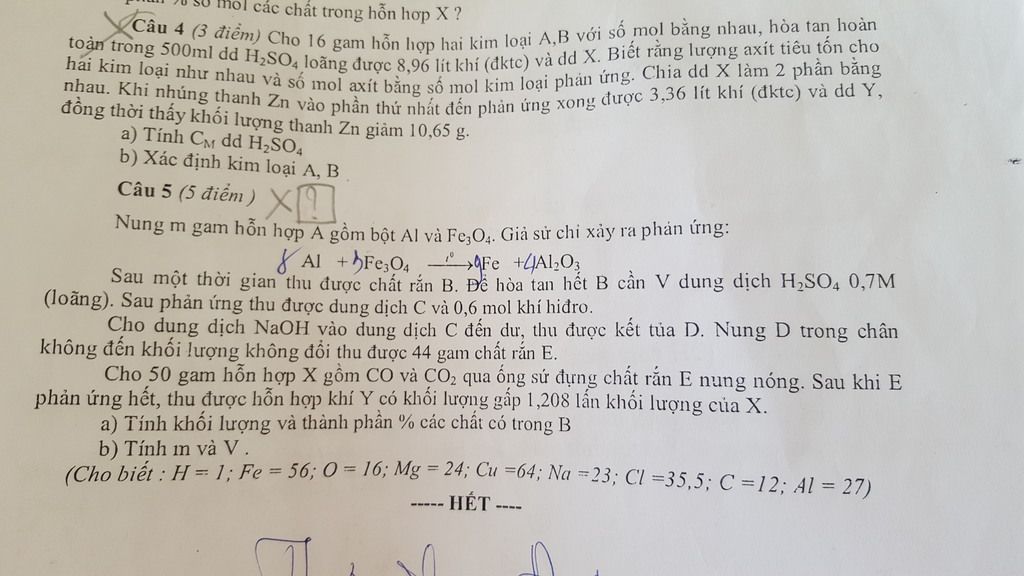 phần % số mol các chất trong hỗn hợp X ?
Câu 4 (3 điểm) Cho 16 gam hỗn hợp hai kim loại A,B với số mol bằng nhau, hòa tan hoàn
toàn trong 500ml dd H₂SO₄ loãng được 8,96 lít khí (đktc) và dd X. Biết rằng lượng axít tiêu tốn cho
hai kim loại như nhau và số mol axít bằng số mol kim loại phản ứng. Chia dd X làm 2 phần bằng
nhau. Khi nhúng thanh Zn vào phần thứ nhất đến phản ứng xong được 3,36 lít khí (đktc) và dd Y,
đồng thời thấy khối lượng thanh Zn giảm 10,65 g.
a) Tính C_M dd H₂SO₄
b) Xác định kim loại A, B
Câu 5 (5 điểm ) X ?
Nung m gam hỗn hợp A gồm bột Al và Fe₃O₄. Giả sử chỉ xảy ra phản ứng:
8 Al + 3Fe₃O₄ —t⁰→ 9Fe +4Al₂O₃
Sau một thời gian thu được chất rắn B. Để hòa tan hết B cần V dung dịch H₂SO₄ 0,7M
(loãng). Sau phản ứng thu được dung dịch C và 0,6 mol khí hiđro.
Cho dung dịch NaOH vào dung dịch C đến dư, thu được kết tủa D. Nung D trong chân
không đến khối lượng không đổi thu được 44 gam chất rắn E.
Cho 50 gam hỗn hợp X gồm CO và CO₂ qua ống sứ đựng chất rắn E nung nóng. Sau khi E
phản ứng hết, thu được hỗn hợp khí Y có khối lượng gấp 1,208 lần khối lượng của X.
a) Tính khối lượng và thành phần % các chất có trong B
b) Tính m và V .
(Cho biết : H = 1; Fe = 56; O = 16; Mg = 24; Cu =64; Na =23; Cl =35,5; C =12; Al = 27)
----- HẾT ----